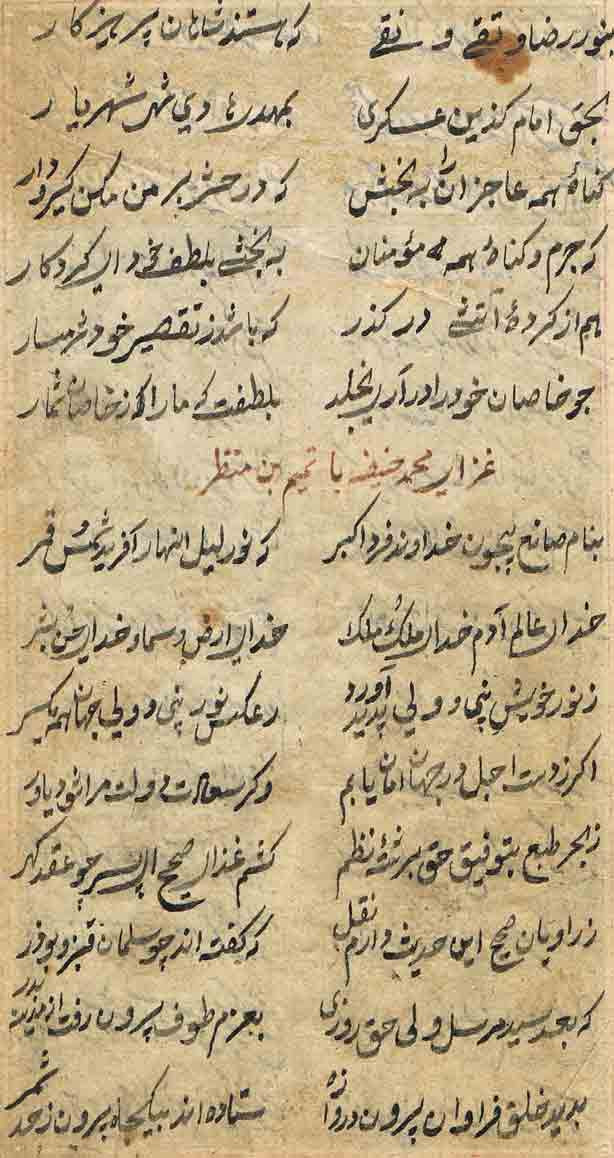 بنور رضا و تقے و نقے که هستند شاهان پرهیزکار
بحق امام گزین عسکری بمهدی هادی شهر شهریار
گناهٔ همه عاجزان را به بخش که در حشر بر من مکن گیرودار
که جرم و گناهٔ همه مؤمنان به بخشے بلطف خود ای کردکار
هم از کردهٔ آتشے در گذر که باشد ز تقصیر خود شرمسار
چو خاصان خود را در آری بخلد بلطفت که ما را از خاصان شمار
غزای محمد حنیفه با تمیم ابن منتظر
بنام صانع بیچون خداوند فرد اکبر که نور لیل النهار آفرید شمس و قمر
خدای عالم آدم خدای ملک ملک خدای ارض و سما و خدای جن بشر
ز نور خویش نبی و ولی پدید آورد ز عکس نور نبی و ولی جهان همه یکسر
اکر ز دست اجل در جهان امان یابم وکر سعادت دولت مرا شود یاور
ز بحر طبع بتوفیق حق برشتهٔ نظم کشم غذای صحیح ای پسر چو عقد کهر
ز راویان صحیح این حدیث دارم نقل که کفته اند چو سلمان قنبر و بوذر
که بعد سید مرسل ولی حق روزی بعزم طوف بیرون رفت از مدینه بدر
بدید خلق فراوان بیرون دروازه ستاده اند بیکجاه بیرون ز حد شمر